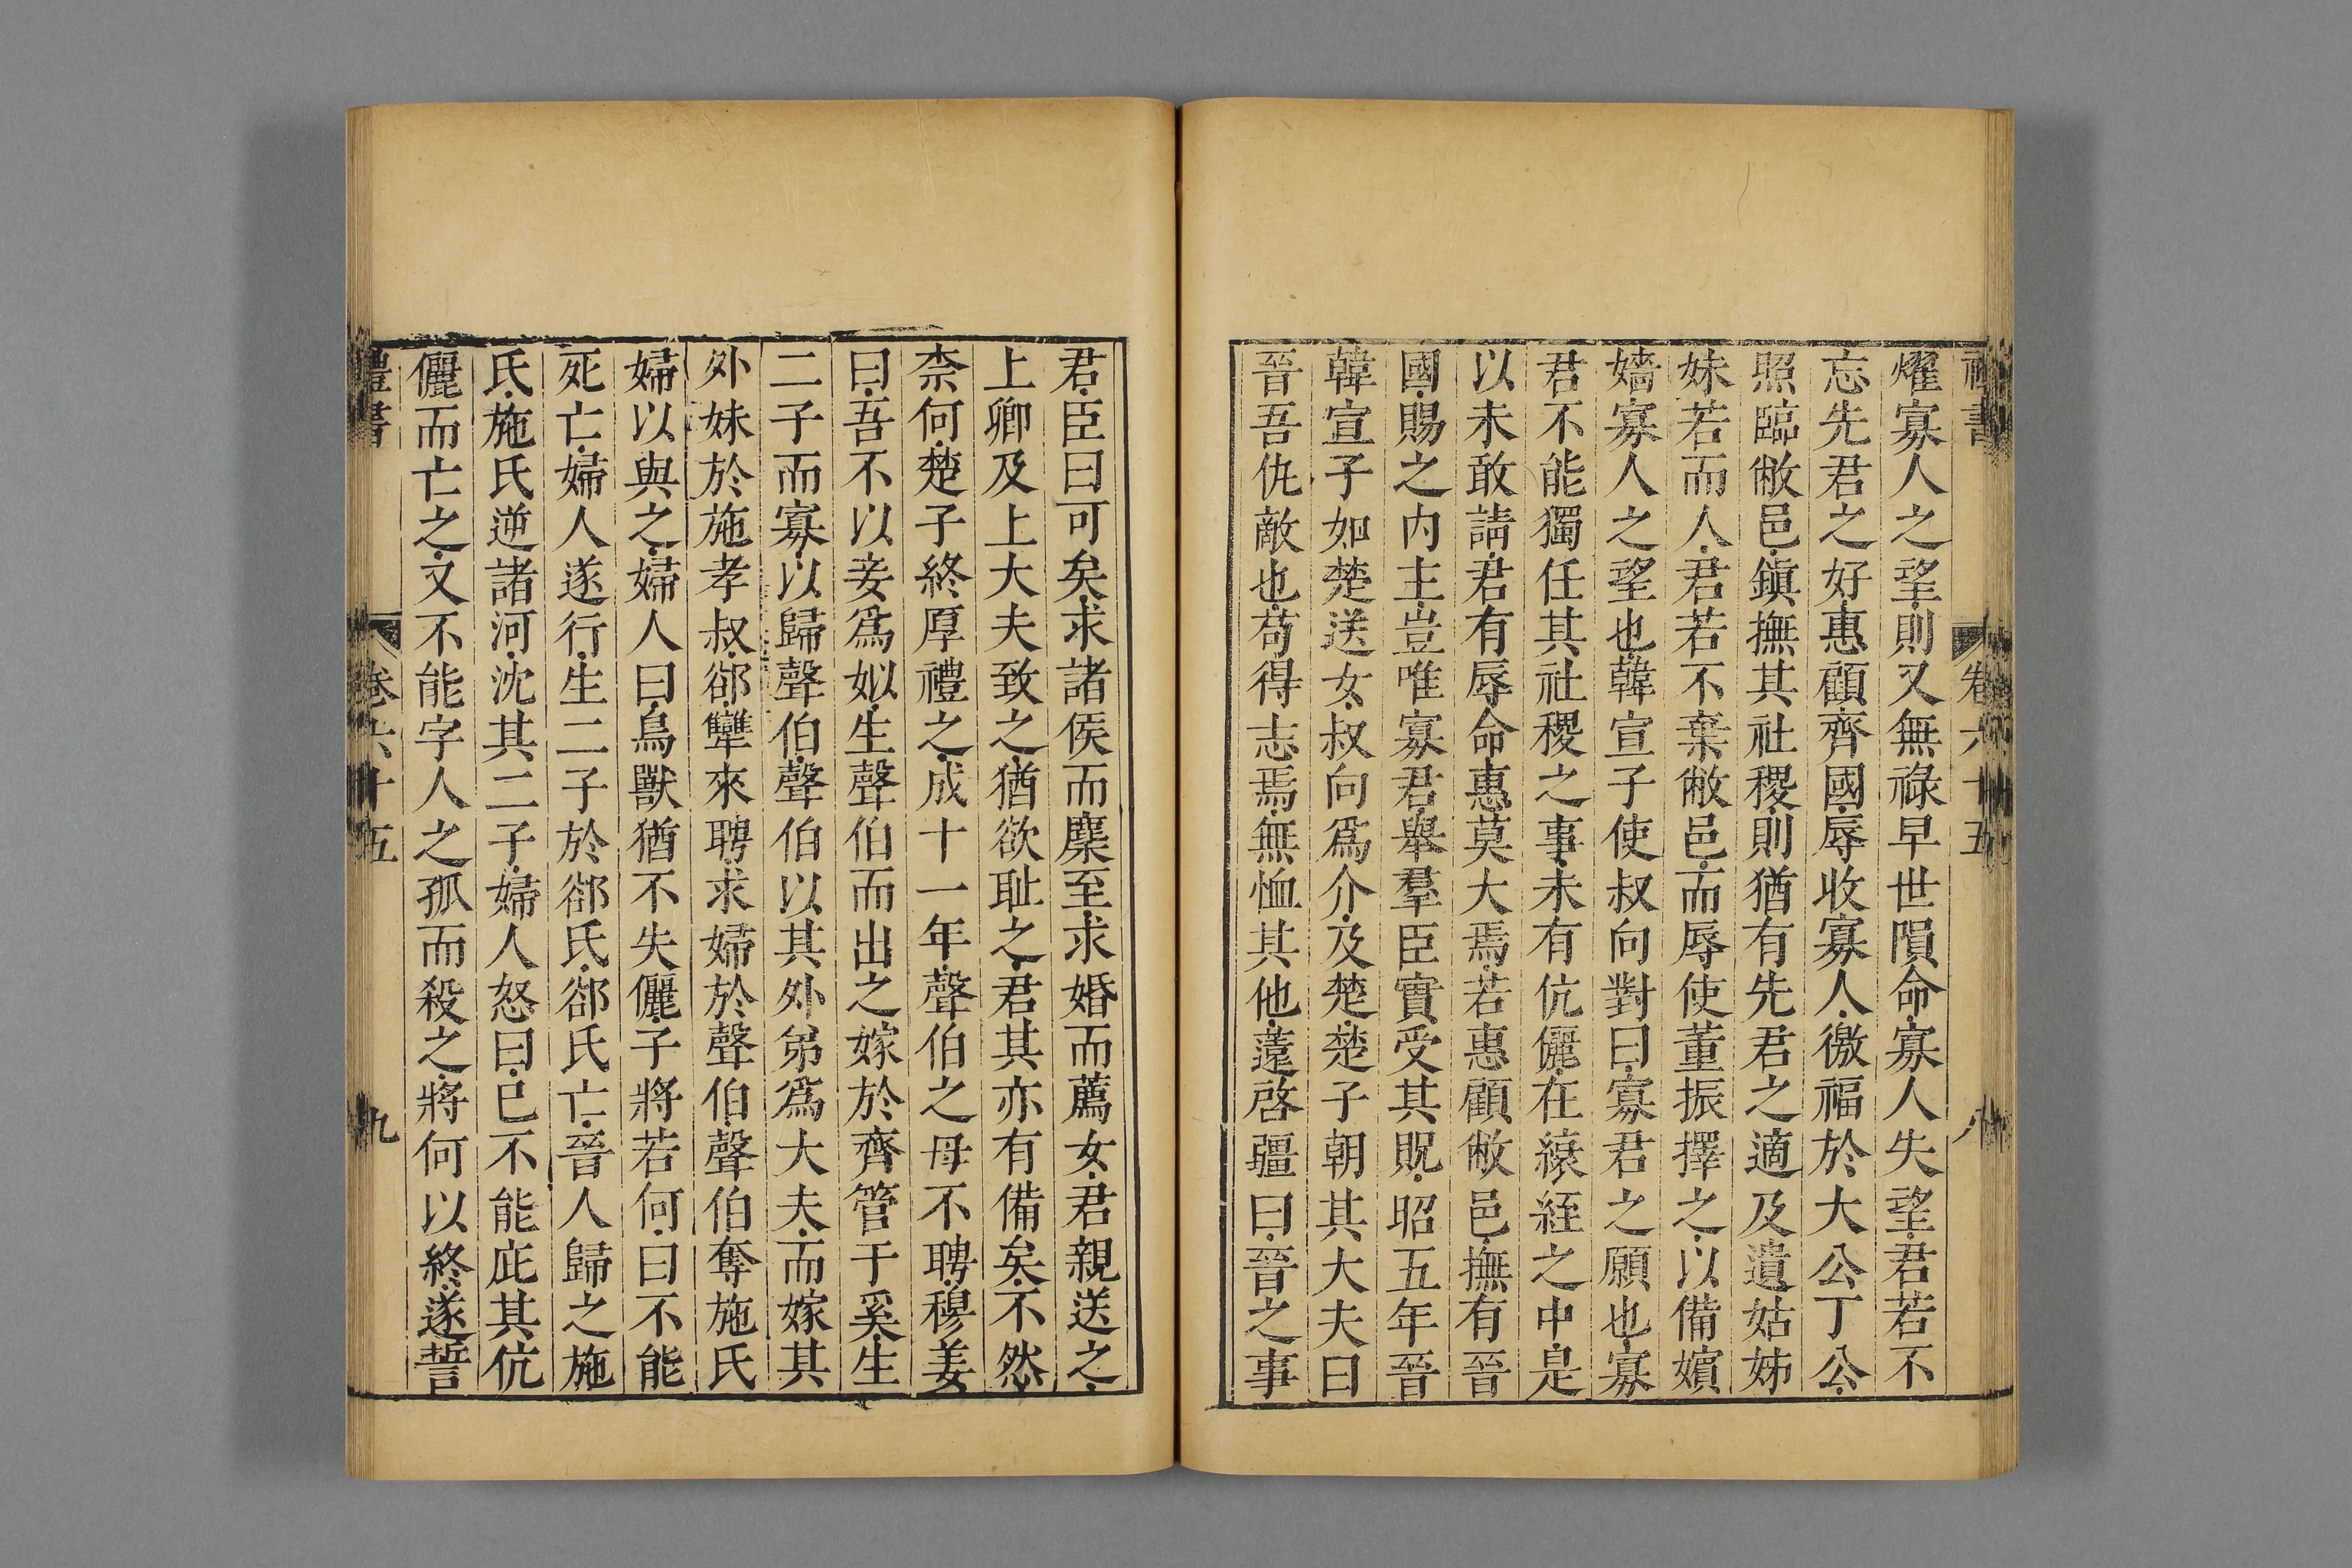 禮書 卷六十五 八
燿寡人之望則又無祿早世隕命寡人失望君若不
忘先君之好惠顧齊國辱收寡人徼福於大公丁公
照臨敝邑鎭撫其社稷則猶有先君之適及遺姑姊
妹若而人君若不棄敝邑而辱使董振擇之以備嬪
嬙寡人之望也韓宣子使叔向對曰寡君之願也寡
君不能獨任其社稷之事未有伉儷在縗絰之中是
以未敢請君有辱命惠莫大焉若惠顧敝邑撫有晉
國賜之内主豈唯寡君舉羣臣實受其貺昭五年晉
韓宣子如楚送女叔向爲介及楚楚子朝其大夫曰
晉吾仇敵也苟得志焉無恤其他薳啓疆曰晉之事
君臣曰可矣求諸侯而麇至求婚而薦女君親送之
上卿及上大夫致之猶欲耻之君其亦有備矣不然
柰何楚子終厚禮之成十一年聲伯之母不聘穆姜
曰吾不以妾爲姒生聲伯而出之嫁於齊管于奚生
二子而寡以歸聲伯聲伯以其外弟爲大夫而嫁其
外妹於施孝叔郤犫來聘求婦於聲伯聲伯奪施氏
婦以與之婦人曰鳥獸猶不失儷子將若何曰不能
死亡婦人遂行生二子於郤氏郤氏亡晉人歸之施
氏施氏逆諸河沈其二子婦人怒曰已不能庇其伉
儷而亡之又不能字人之孤而殺之將何以終遂誓
禮書 卷六十五 九